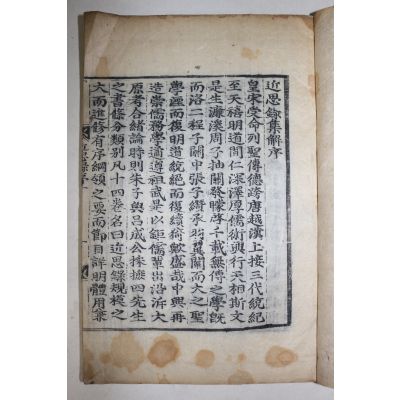 近思錄集解序
皇宋受命列聖傳德跨唐越漢上接三代統紀
至天禧明道間仁深澤厚儒術興行天相斯文
是生濂溪周子抽關發矇啓千載無傳之學旣
而洛二程子關中張子纘承羽翼闢而大之聖
學湮而復明道統絶而復續猗歟盛哉中興再
造崇儒務學遹遵祖武是以鉅儒輩出沿泝大
原考合緒論時則朱子與呂成公採摭四先生
之書條分類別凡十四卷名曰近思錄規模之
大而進修有序綱領之要而節目詳明體用兼